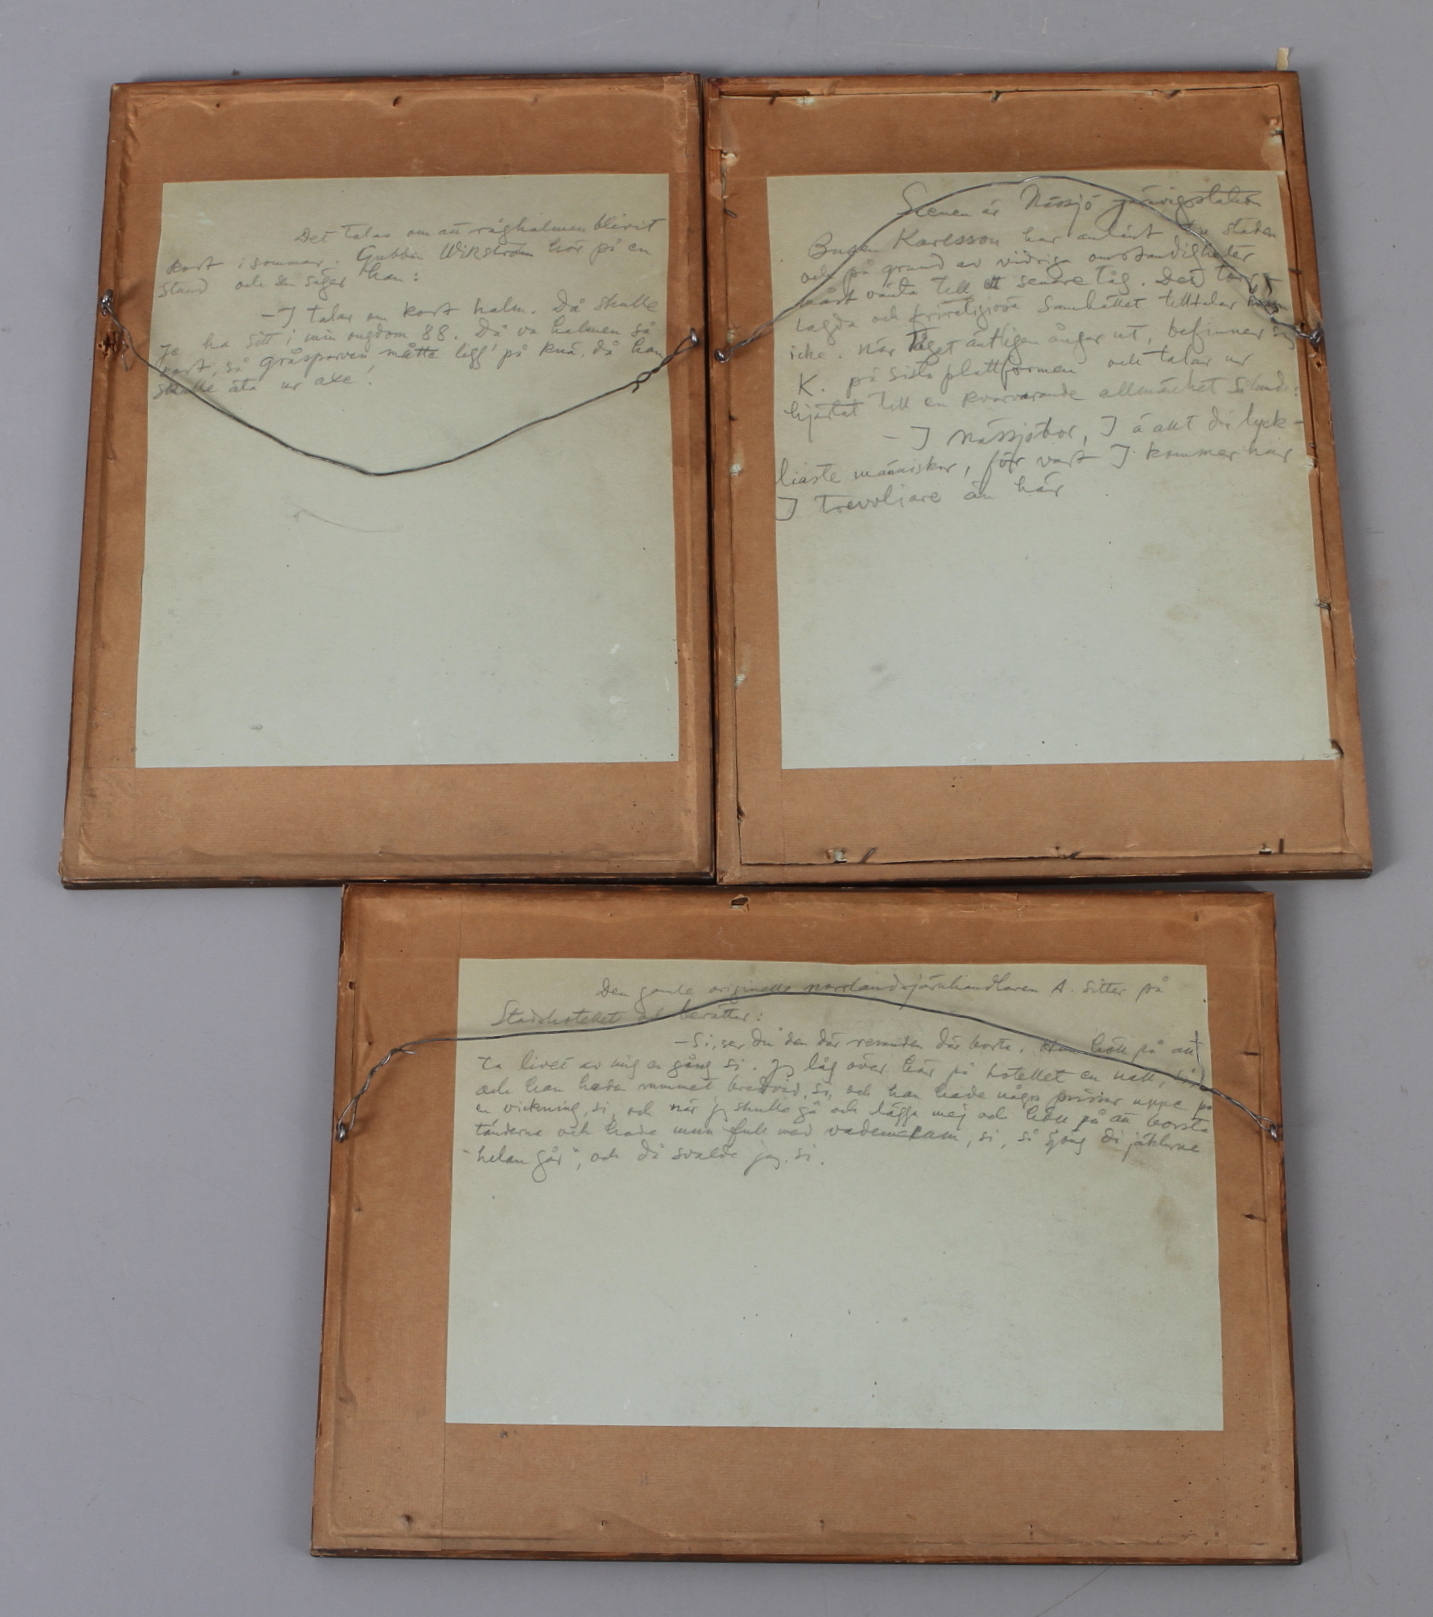 Det talas om att råghalmen blivit
kort i sommar. Gubben Wikström hör på en
stund och sen säger han:
– I talar om kort halm. Då skulle
ja ha sitt i min ungdom 88. Då va halmen så
kort, så gråsparven måtte ligg' på knä, då han
skulle äta ur axe'.
Scenen är Nässjö järnvägsstation
Karlsson har anlänt till staden
och på grund av vidriga omständigheter
måst vänta till ett senare tåg. Det
lagda och frireligiösa samhället tilltalar
icke. När tåget äntligen ångar ut, befinner sig
K. på sista plattformen och talar ur
hjärtat till en kvarvarande allmänhet
– I nässjöbor, I ä allt di lyck-
liaste människor, för vart I kommer har
I trevliare än här
Den gamle originelle norrlandsjärnhandlaren A. sitter på
Stadshotellet och berättar:
– Si, ser du den där resanden där borta. Han höll på att
ta livet av mig en gång si. Jg låg över här på hotellet en natt, si,
och han hade rummet bredvid, si, och han hade några uppe på
en vickning, si, och när jg skulle gå och lägga mej och höll på att borsta
tänderna och hade mun full med vademecum, si, så sjöng di jäklarna
"helan går", och då svalde jag. si.